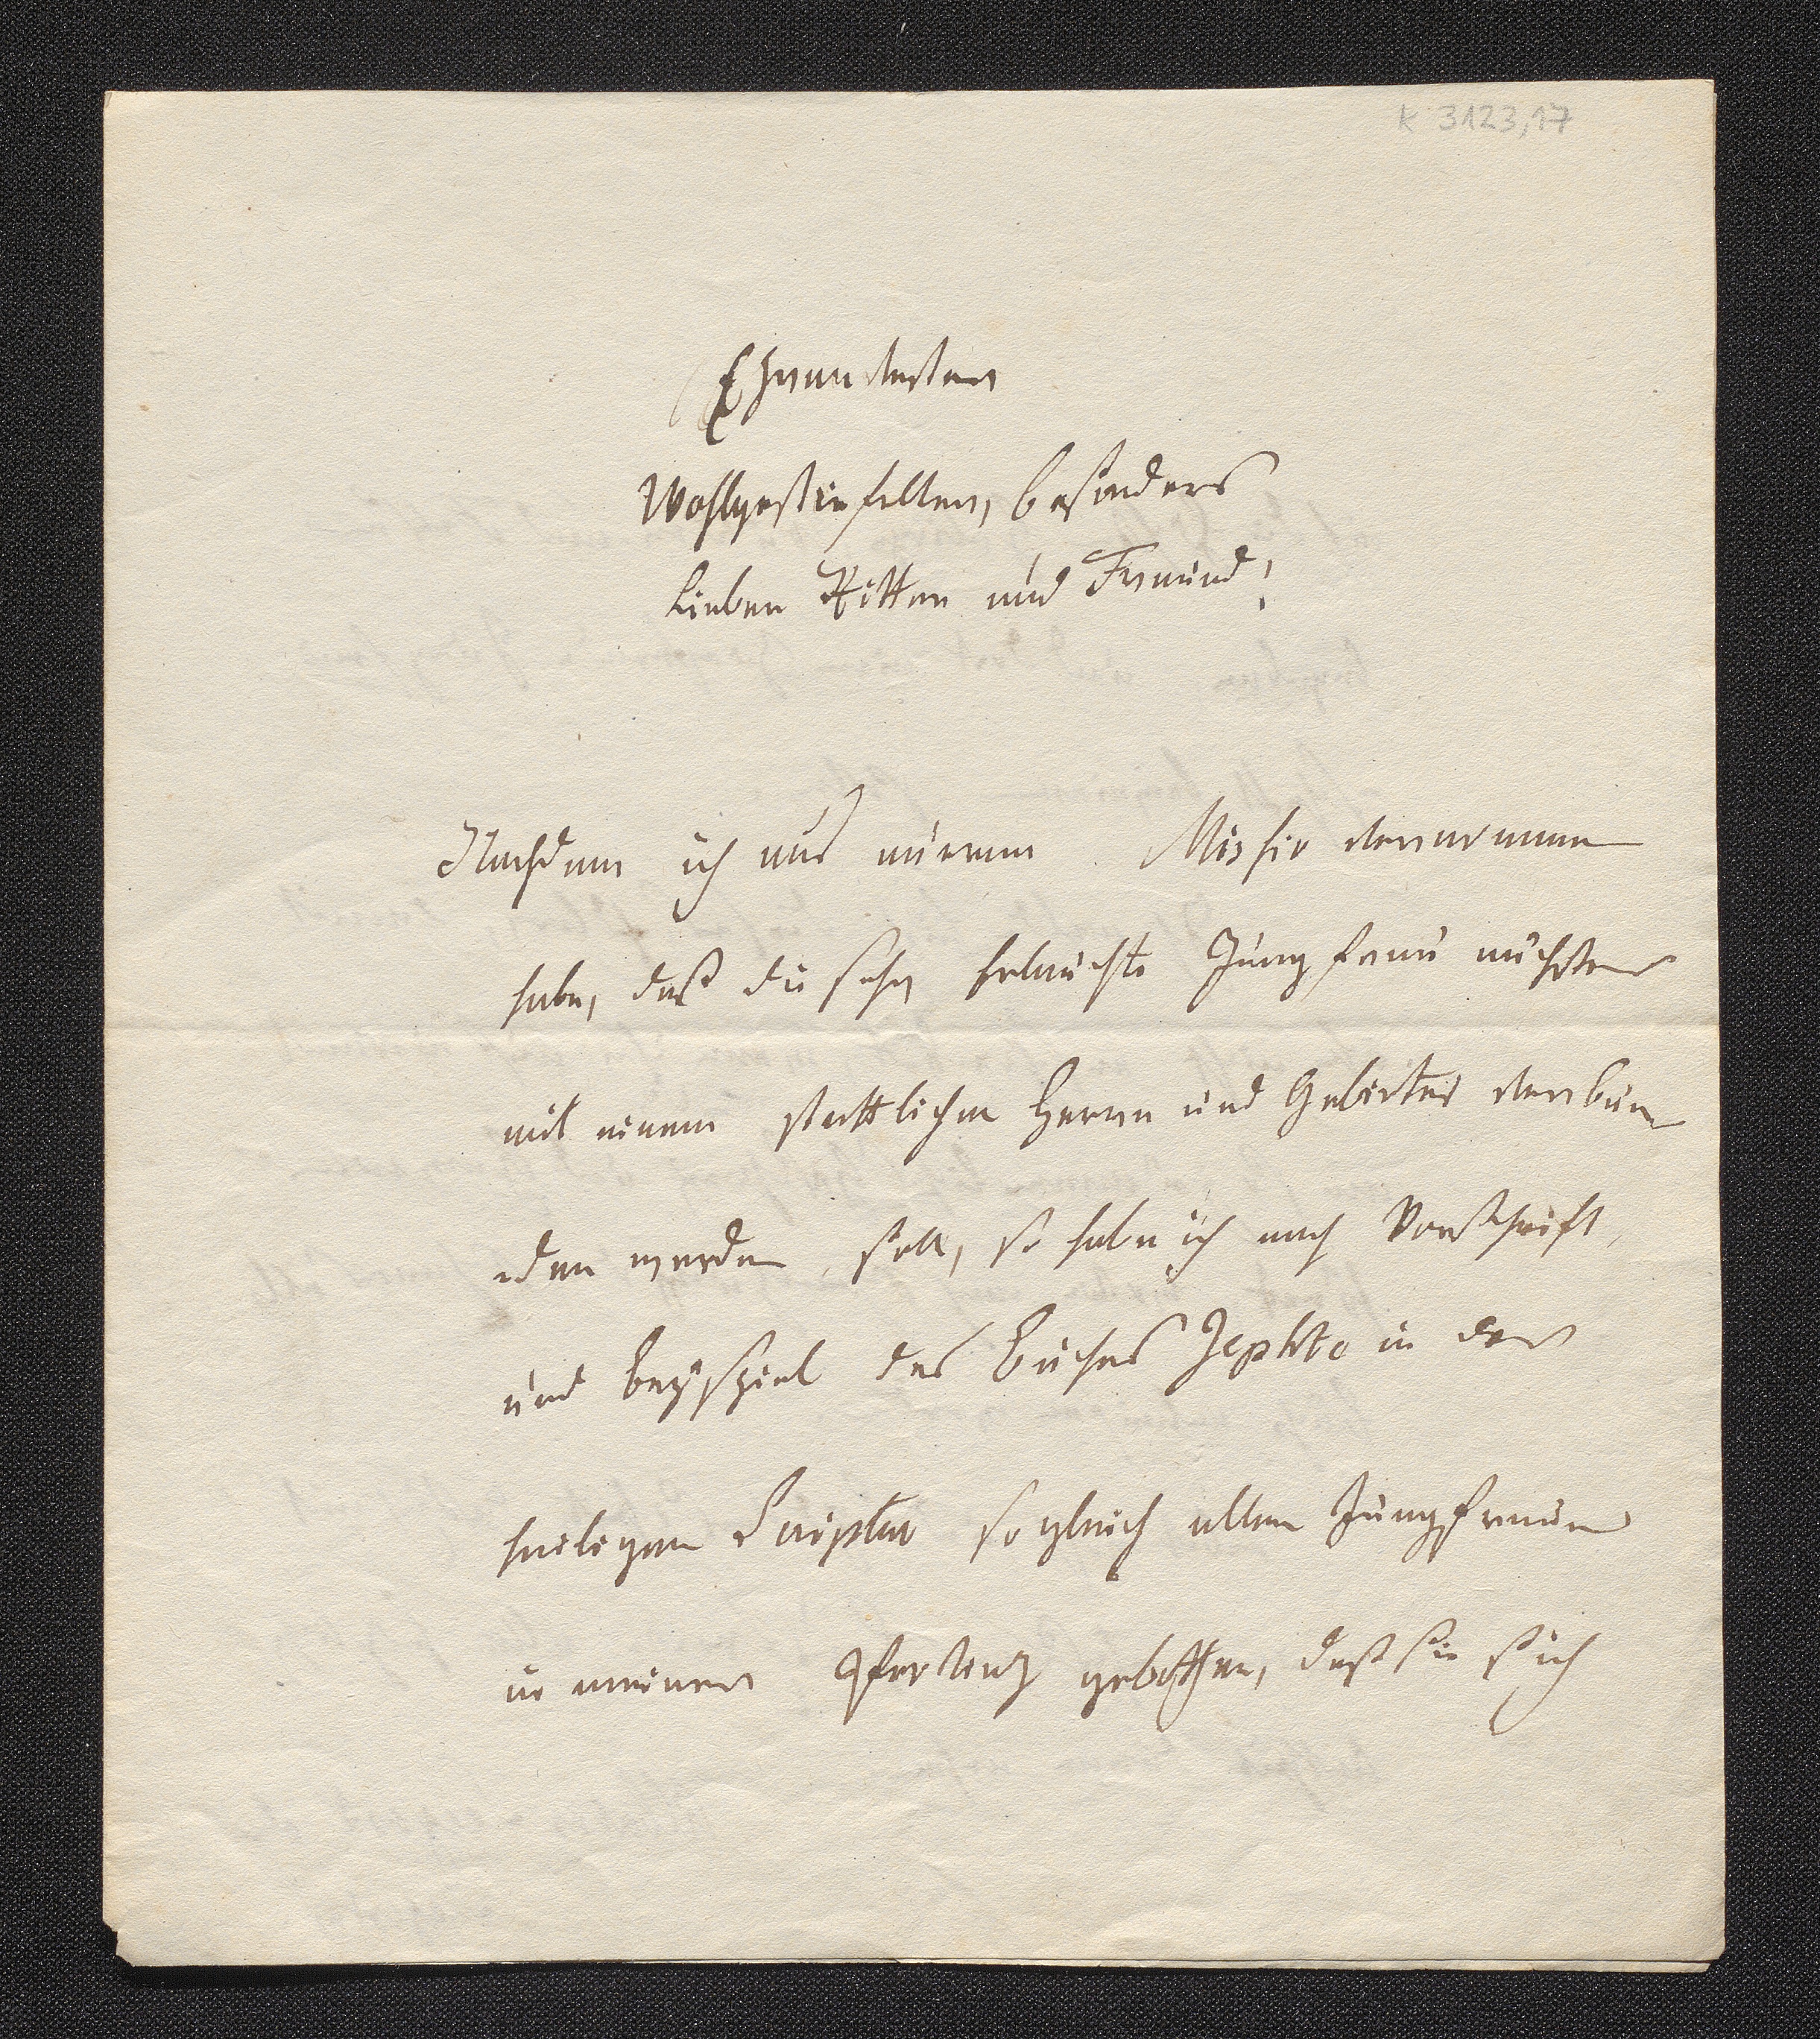 K 3123,17
Ehrenvester
Wohlgestrenger, besonders
Lieber Ritter und Freund!
Nachdem ich aus eurem Missiv vernommen
habe, daß die sehr erlauchte Jungfrau nächstens
mit einem stattlichen Herrn und Gebieter verbun
den werden soll, so habe ich nach Vorschrift
und Beyspiel des Buches Jephta in der
heiligen Scriptur sogleich allen Jungfrauen
in meiner gebothen, daß sie sich